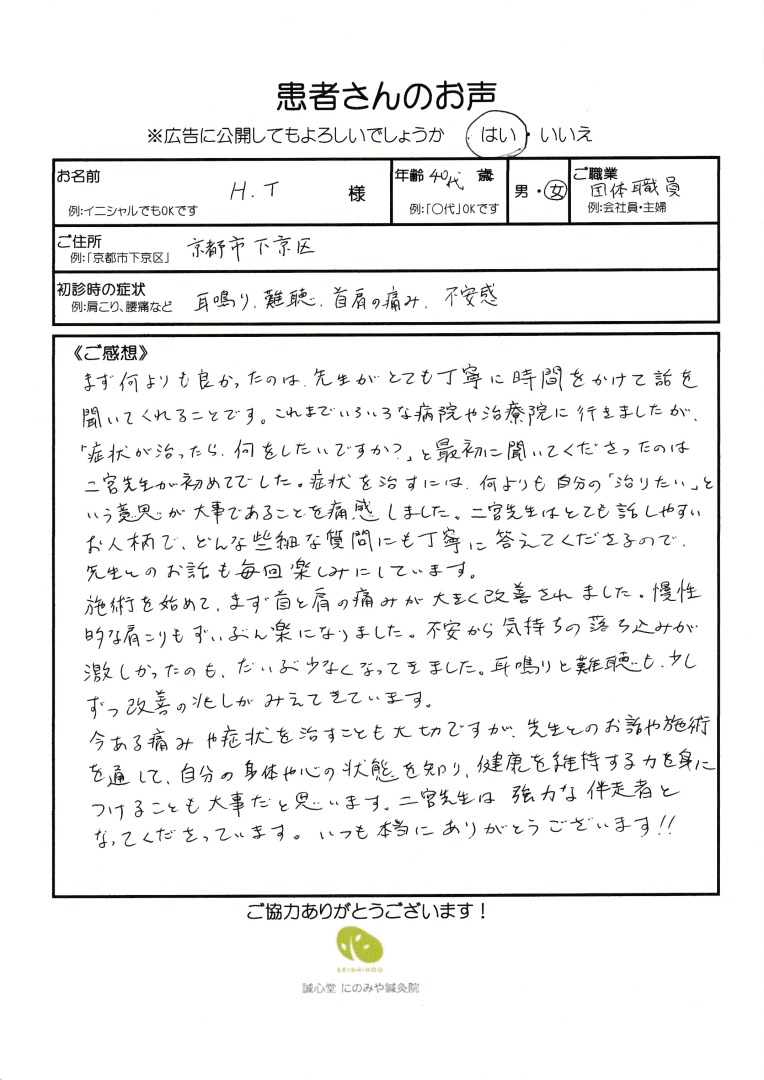 患者さんのお声
※広告に公開してもよろしいでしょうか はい・いいえ
お名前 H.T 様
例:イニシャルでもOKです
年齢 40代 歳
例:「〇代」OKです
男・女
ご職業
団体職員
例:会社員・主婦
ご住所
例:「京都市下京区」 京都市下京区
初診時の症状
例:肩こり、腰痛など 耳鳴り、難聴、首肩の痛み、不安感
《ご感想》
まず何よりも良かったのは、先生がとても丁寧に時間をかけて話を
聞いてくれることです。これまでいろいろな病院や治療院に行きましたが、
「症状が治ったら、何をしたいですか?」と最初に聞いてくださったのは
二宮先生が初めてでした。症状を治すには、何よりも自分の「治りたい」と
いう意思が大事であることを痛感しました。二宮先生はとても話しやすい
お人柄で、どんな些細な質問にも丁寧に答えてくださるので、
先生とのお話も毎回楽しみにしています。
施術を始めて、まず首と肩の痛みが大きく改善されました。慢性
的な肩こりもずいぶん楽になりました。不安から気持ちの落ち込みが
激しかったのも、だいぶ少なくなってきました。耳鳴りと難聴も、少し
ずつ改善の兆しがみえてきています。
今ある痛みや症状を治すことも大切ですが、先生とのお話や施術
を通して、自分の身体や心の状態を知り、健康を維持する力を身に
つけることも大事だと思います。二宮先生は強力な伴走者と
なってくださっています。いつも本当にありがとうございます!!
ご協力ありがとうございます!
SEISHINDO
誠心堂 にのみや鍼灸院